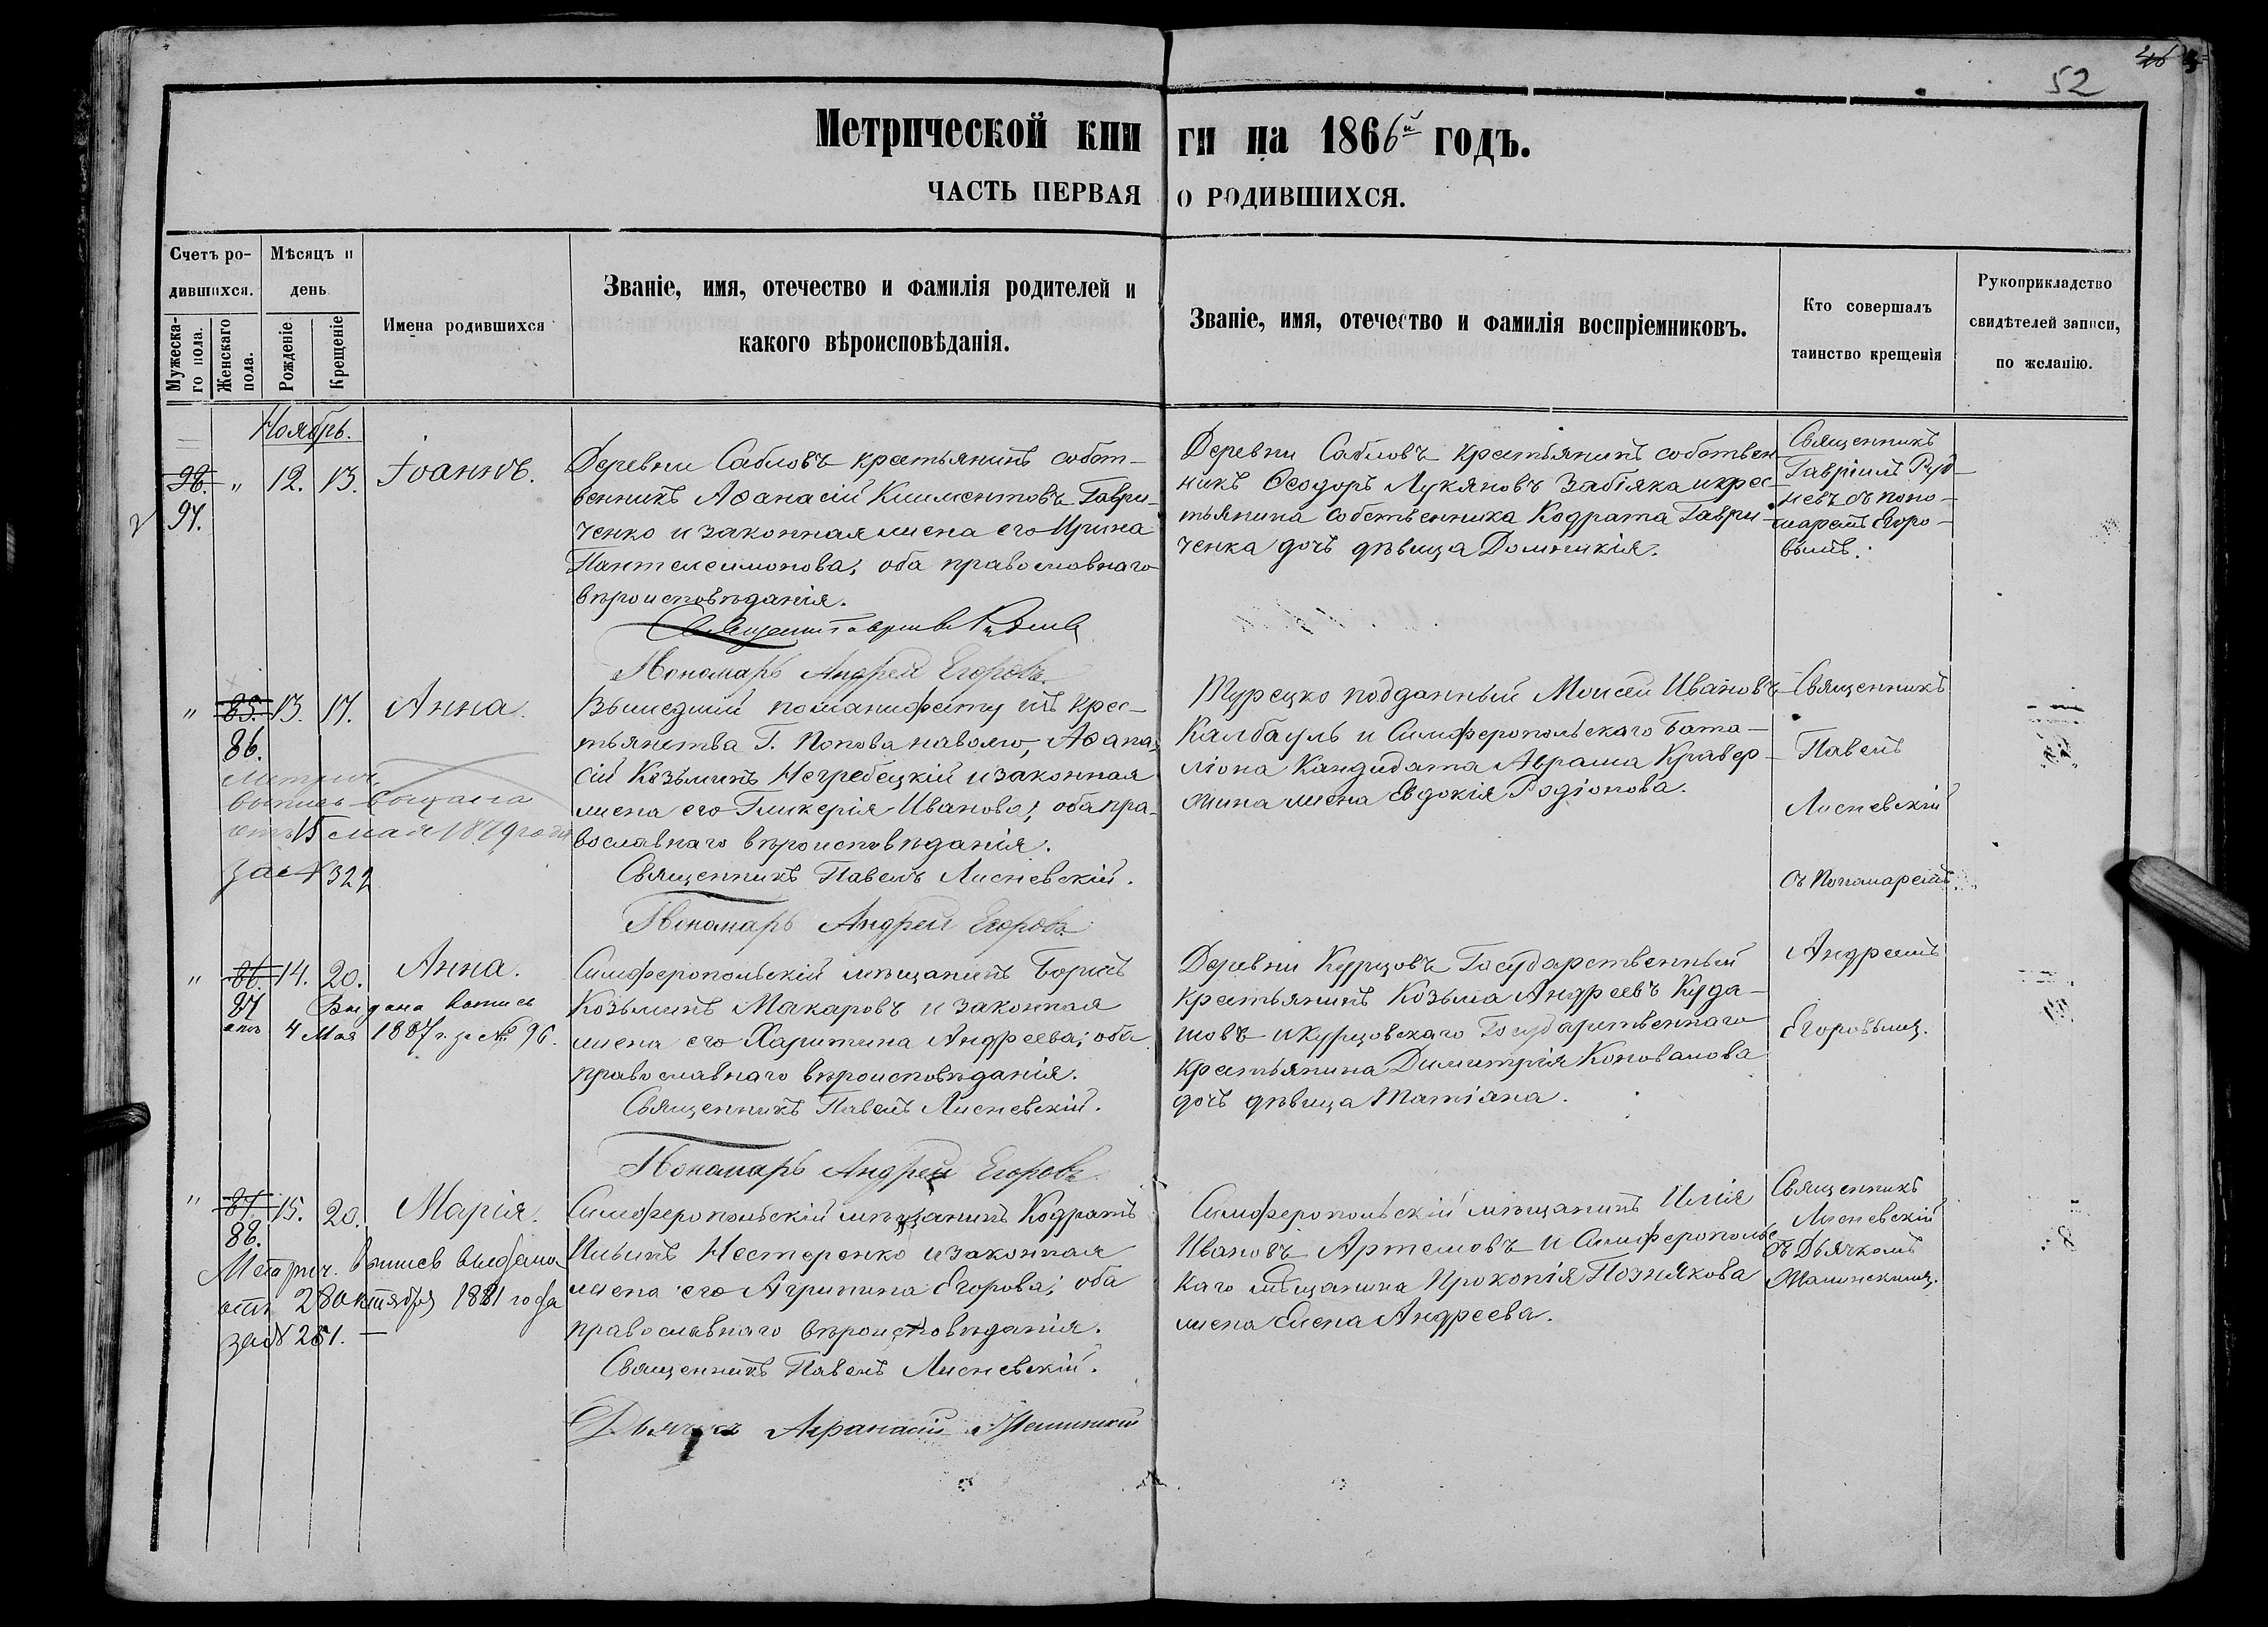 52
Метрической книги на 1866й годъ.
ЧАСТЬ ПЕРВАЯ О РОДИВШИХСЯ.
Счетъ ро-
дившихся.
Мужеска-
го пола.
Женскаго
пола.
Мѣсяцъ и
день
Рожденіе.
Крещеніе
Имена родившихся
Званіе, имя, отечество и фамилія родителей и
какого вѣроисповѣданія.
Званіе, имя, отечество и фамилія воспріемниковъ.
Кто совершалъ
таинство крещенія
Рукоприкладство
свидѣтелей записи,
по желанію.
Ноябрь.
98. " 12. 13. Іоаннъ.
97.
Деревни Сабловъ крестьянинъ собст-
венникъ Аѳанасій Климентовъ Гаври-
ченко и законная жена его Ирина
Пантелеимонова; оба православнаго
вѣроисповѣданія.
Пономарь Андрей Егоровъ.
Деревни Сабловъ крестьянинъ собствен-
никъ Ѳеодоръ Лукяновъ Забіяка и крес-
тьянина собственника Кодрата Гаври-
ченка дочь дѣвица Домникія.
Священникъ
Гавріилъ Руд-
невъ съ поно-
маремъ Егоро-
вымъ.
" 85. 13. 17. Анна.
86.
Метрич.
выпись выдана
отъ 15 мая 1879 года
за № 322
Вышедшій по манифесту изъ крес-
тьянства Г. Попова на волю, Аѳана-
сій Козьминъ Негребецкій и законная
жена его Гликерія Иванова; оба пра-
вославнаго вѣроисповѣданія.
Священникъ Павелъ Лисневскій.
Пономарь Андрей Егоровъ
Турецко подданный Моисей Ивановъ
Калбауль и Симферопольскаго Бата-
ліона Кандидата Аврама Кравер-
жена Евдокія Родіонова.
Священникъ
Павелъ
Лисневскій
съ Пономаремъ
Андреемъ
Егоровымъ.
" 86. 14. 20. Анна.
87
Выдана выпись
4 Мая 1887 г. за № 96.
Симферопольскій мѣщанинъ Борисъ
Козьминъ Макаровъ и законная
жена его Харитина Андреева; оба
православнаго вѣроисповѣданія.
Священникъ Павелъ Лисневскій.
Пономарь Андрей Егоровъ
Деревни Курцовъ Государственный
крестьянинъ Козьма Андреевъ Куда-
шовъ и курцовскаго Государственнаго
крестьянина Димитрія Коновалова
дочь дѣвица Татіана.
" 87. 15. 20. Марія.
88.
Метрич. выпись выдана
отъ 28 октября 1881 года
за № 251. —
Симферопольскій мѣщанинъ Кодратъ
Ильинъ Нестеренко и законная
жена его Агрипина Егорова; оба
православнаго вѣроисповѣданія.
Священникъ Павелъ Лисневскій.
Дьячекъ Аѳанасій
Симферопольскій мѣщанинъ Илія
Ивановъ Артемовъ и Симферопольс-
каго мѣщанина Прокопія Познякова
жена Елена Андреева.
Священникъ
Лисневскій
съ Дьячкомъ